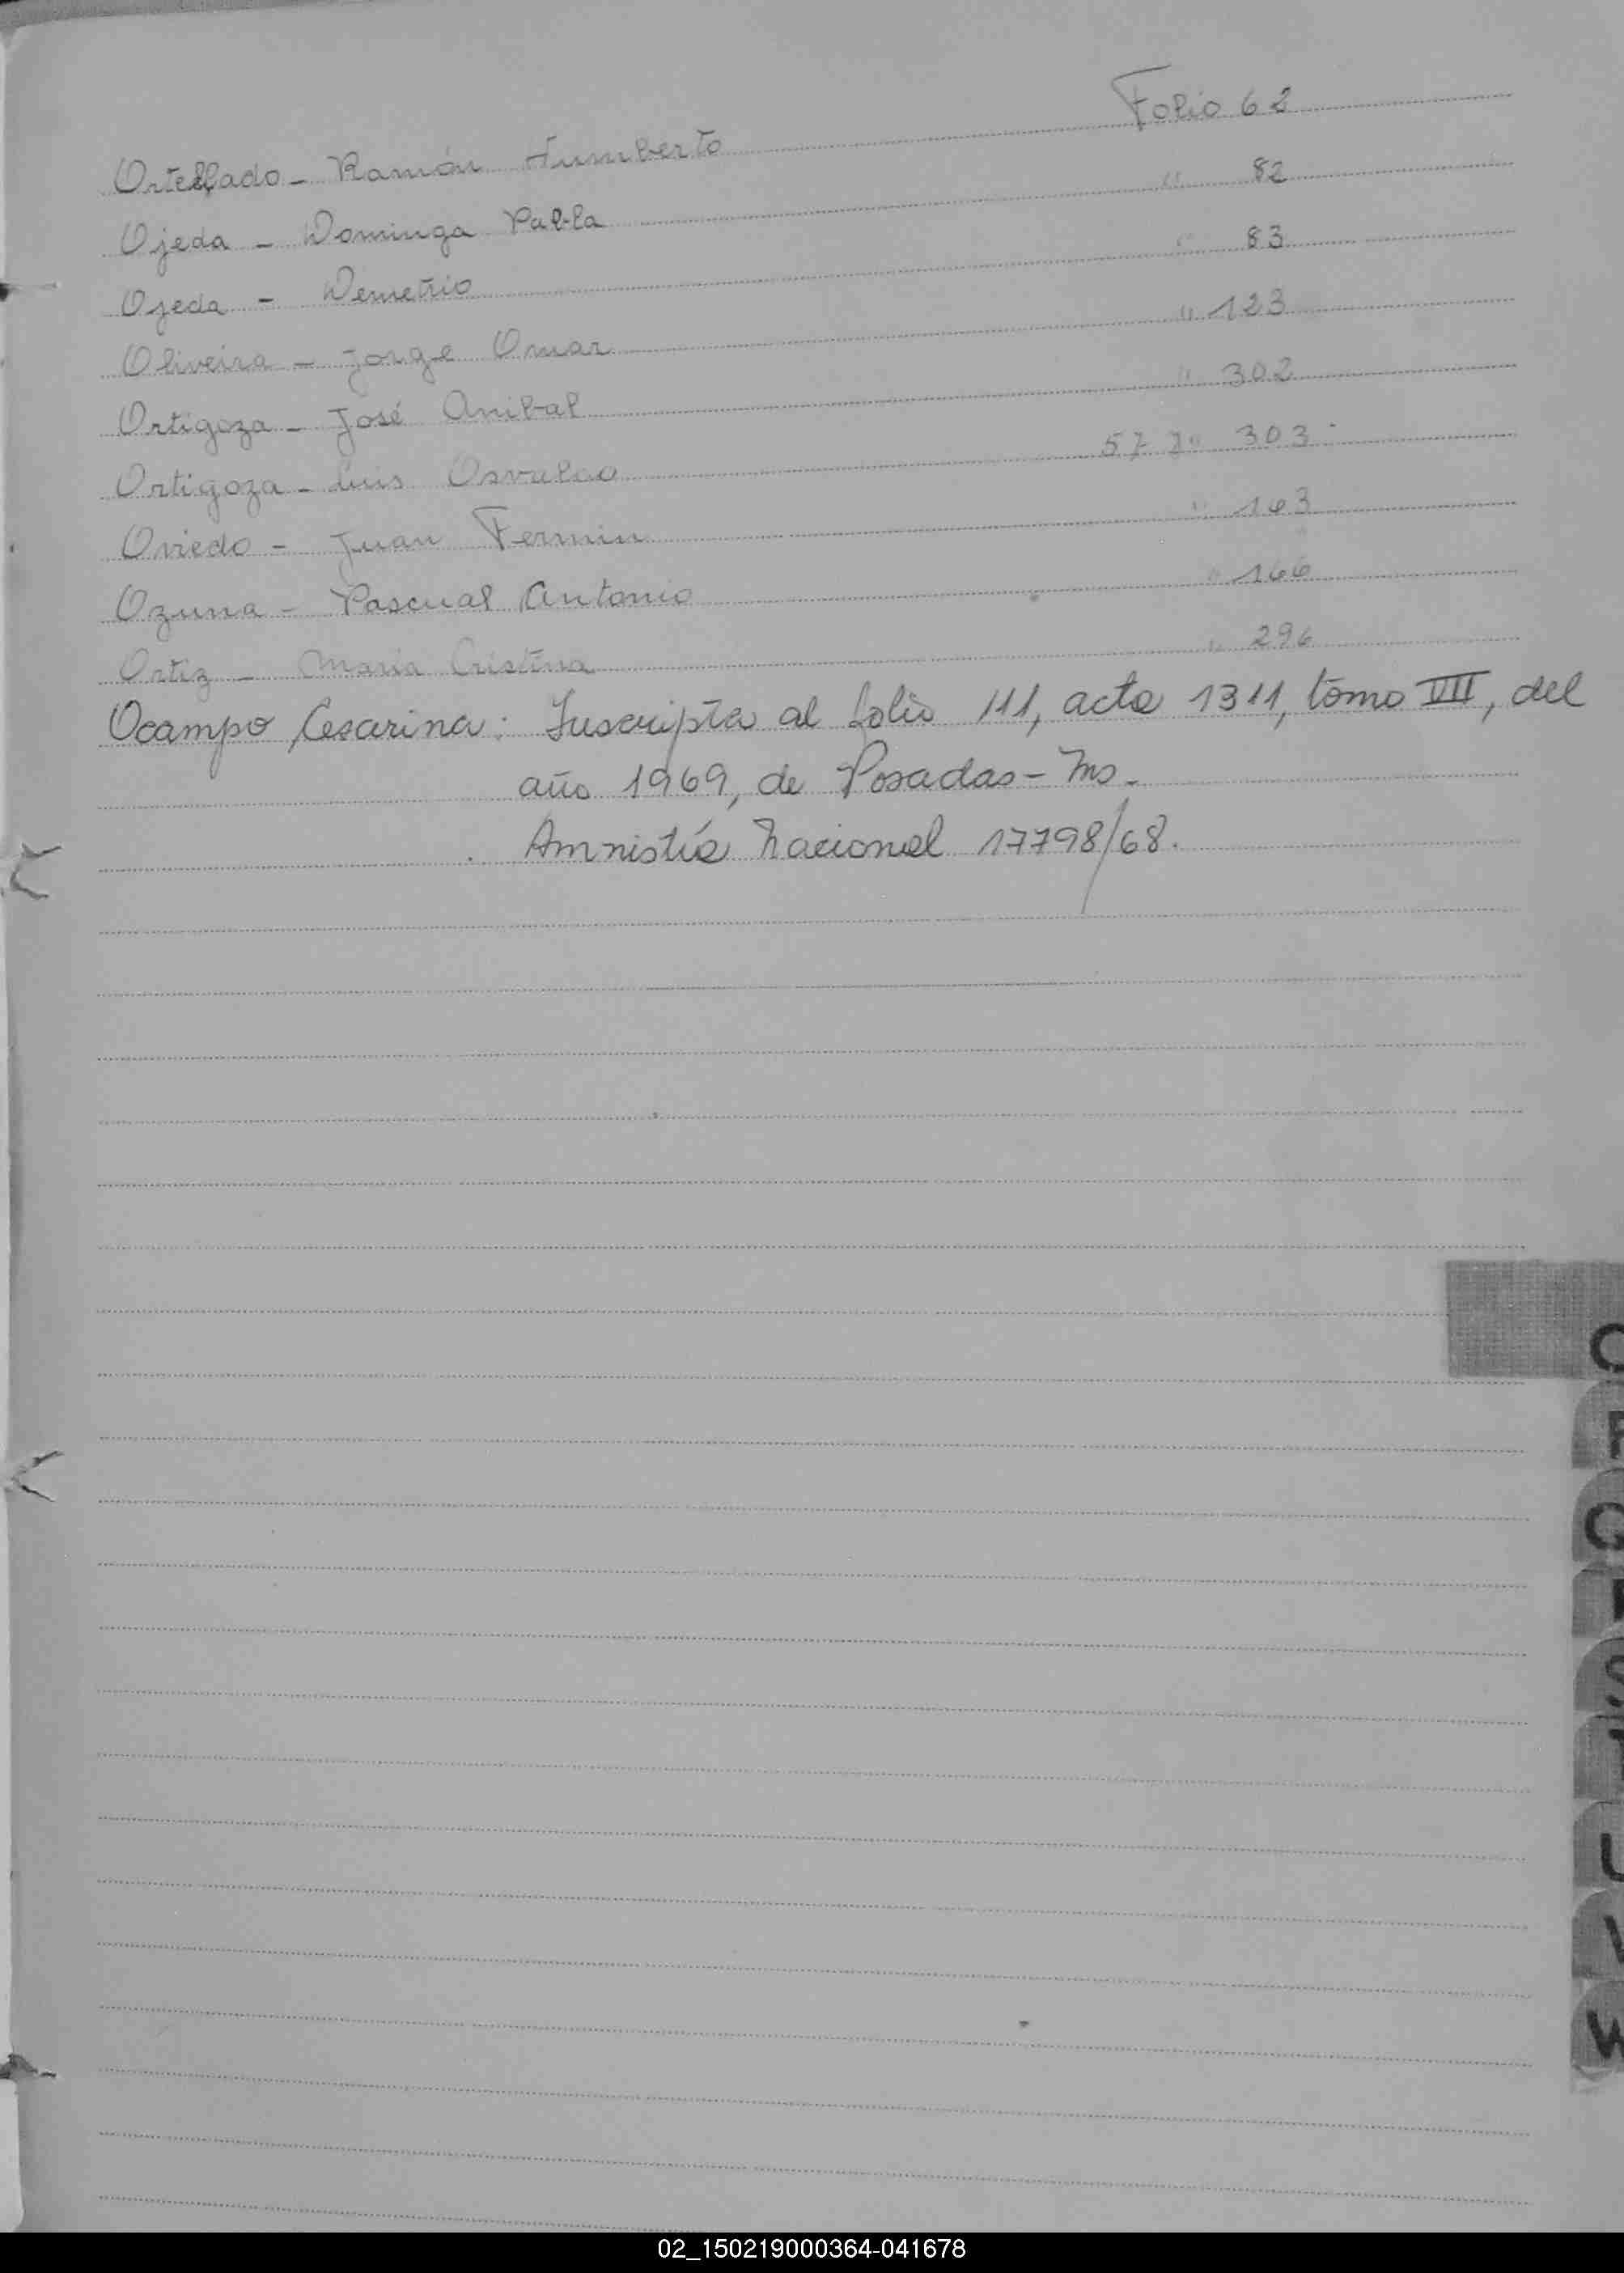 Ortellado - Ramón Humberto Folio 62
Ojeda - Dominga Pabla " 82
Ojeda - Demetrio " 83
Oliveira - Jorge Omar " 123
Ortigoza - José Anibal " 302
Ortigoza - Luis Osvaldo " 303
Oviedo - Juan Fermin " 163
Ozuna - Pascual Antonio " 166
Ortiz - Maria Cristina " 296
Ocampo, Cesarina: Inscripta al folio 111, acta 1311, tomo VII, del
año 1969, de Posadas - Ms -
Amnistía Nacional 17798/68.
O
P
Q
S
T
U
V
W
02_150219000364-041678